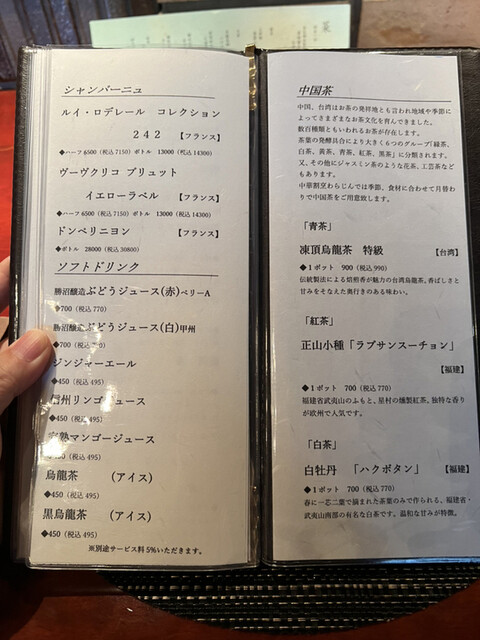 シャンパーニュ
ルイ・ロデレール コレクション
242 【フランス】
◆ハーフ 6500（税込 7150）ボトル 13000（税込 14300）
ヴーヴクリコ ブリュット
イエローラベル 【フランス】
◆ハーフ 6500（税込 7150）ボトル 13000（税込 14300）
ドンペリニヨン 【フランス】
◆ボトル 28000（税込 30800）
ソフトドリンク
勝沼醸造 ぶどうジュース（赤）ベリーA
◆700（税込 770）
勝沼醸造 ぶどうジュース（白）甲州
◆700（税込
ジンジャーエール
◆450（税込 495）
信州リンゴジュース
◆450（税込 495）
熟マンゴージュース
450（税込 495）
烏龍茶 （アイス）
◆450（税込 495）
黒烏龍茶 （アイス）
◆450（税込 495）
※別途サービス料 5%いただきます。
中国茶
中国、台湾はお茶の発祥地とも言われ地域や季節
によってさまざまなお茶文化を育んできました。
数百種類ともいわれるお茶が存在します。
茶葉の発酵具合により大きく6つのグループ「緑茶、
白茶、黄茶、青茶、紅茶、黒茶」に分類されます。
又、その他にジャスミン茶のような花茶、工芸茶など
もあります。
中華割烹わらじんでは季節、食材に合わせて月替わ
りで中国茶をご用意致します。
「青茶」
凍頂烏龍茶 特級 【台湾】
◆1ポット 900（税込 990）
伝統製法による焙煎香が魅力の台湾烏龍茶。香ばしさと
甘みをそなえた奥行きのある味わい。
「紅茶」
正山小種「ラプサンスーチョン」
【福建】
◆1ポット 700（税込 770）
福建省武夷山のふもと、星村の燻製紅茶。独特な香り
が欧州で人気です。
「白茶」
白牡丹 「ハクボタン」 【福建】
◆1ポット 700（税込 770）
春に一芯二葉で摘まれた茶葉のみで作られる、福建省・
武夷山南部の有名な白茶です。温和な甘みが特徴。